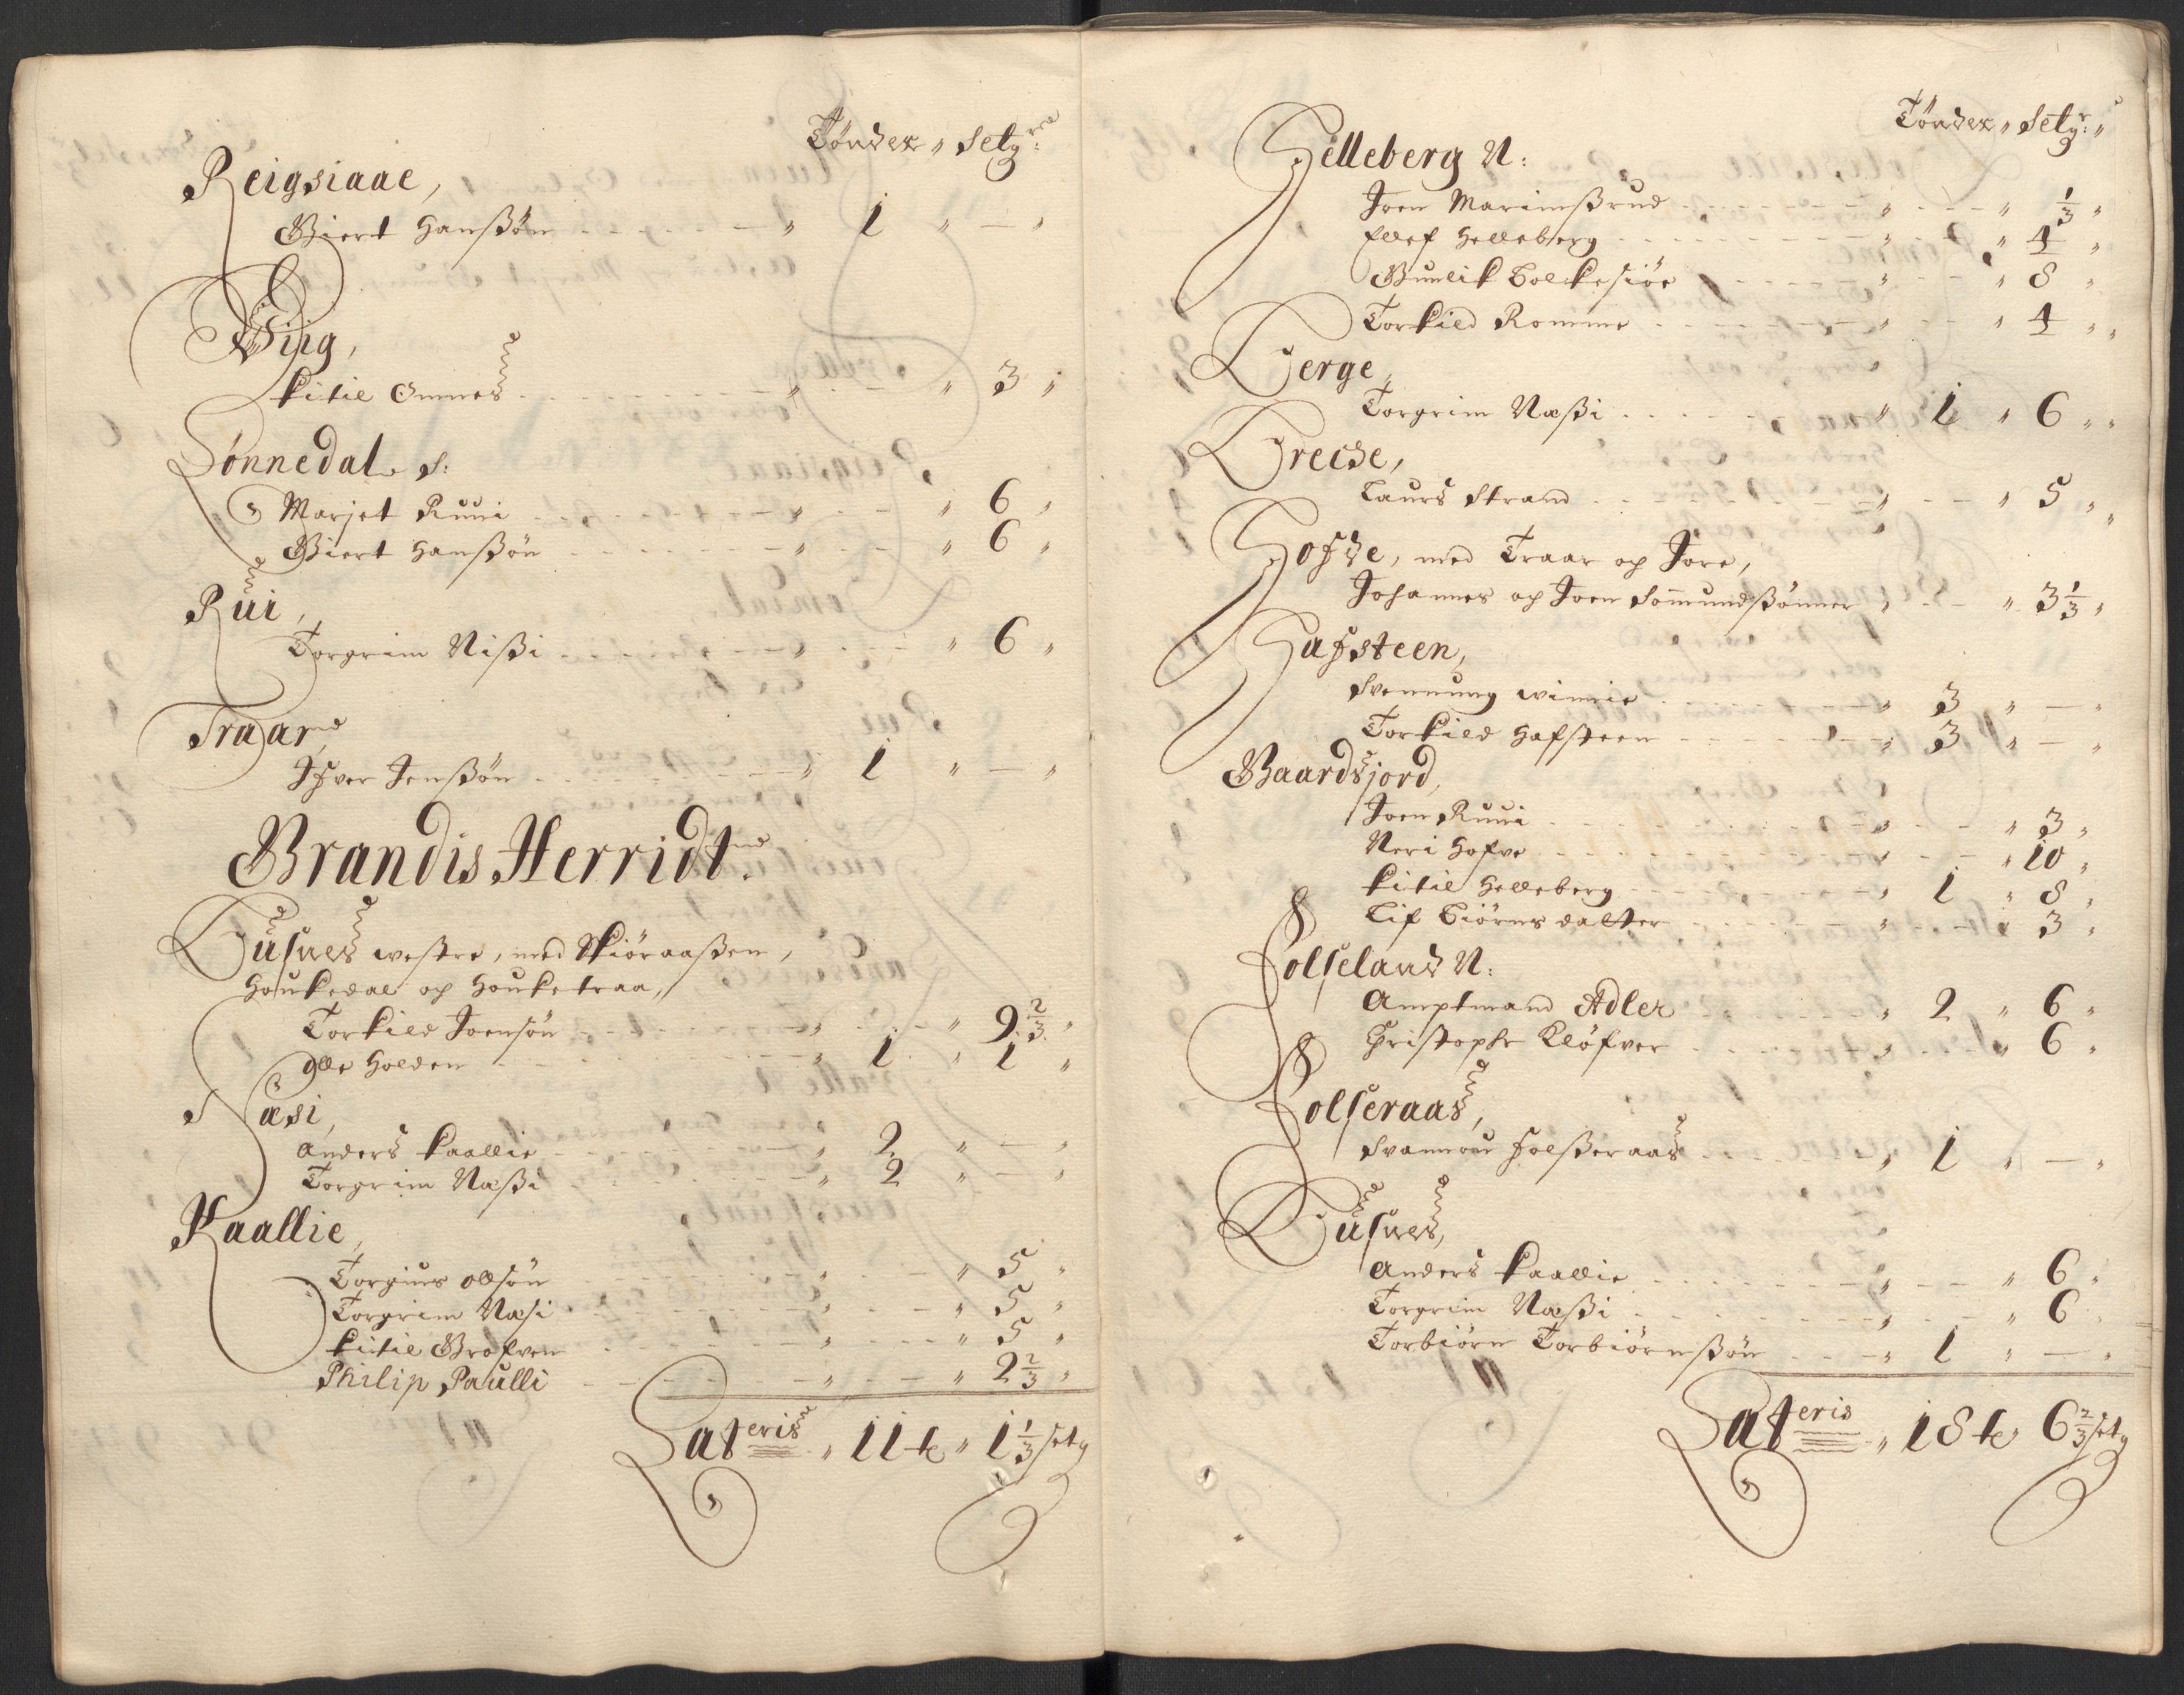 Tönder „ Setgr:
Reigsiaae,
Giert Hanssön - - - „ 1 „ — „
Wiig,
Kitil Omnes - - - „ - „ 3 „
Sönnedal S:
Marjet Ruui - - - „ - „ 6 „
Giert Hanssön - - - „ - „ 6 „
Rui,
Torgrim Nissi - - - „ - „ 6 „
Traar,
Ifver Jenssön - - - „ 1 „ — „
Brandis Herridt.
Busnes westre, med Skiöraassen,
Houkedal og Houketraa,
Torkild Joensön - - - „ - „ 9 2/3 „
Olle Holden - - - „ 1 „ 1 „
Næsi,
Anders Kaallie - - - „ 2 „ — „
Torgrim Næssi - - - „ 2 „ — „
Kaallie,
Torgius Olsön - - - „ - „ 5 „
Torgrim Næsi - - - „ - „ 5 „
Kitil Grofven - - - „ - „ 5 „
Philip Paulli - - - „ - „ 2 2/3 „
Lateris „ 11 te „ 1 1/3 setg
Tönder „ Setgr: „
Helleberg N:
Joen Marimsrud - - - „ - „ 1/3 „
Ellef Helleberg - - - „ - „ 4 „
Gunlik Bolkesiöe - - - „ „ 8 „
Torkild Romme - - - „ - „ 4 „
Berge,
Torgrim Næssi - - - „ 1 „ 6 „
Breide,
Laurs Strand - - - „ - „ 5 „
Hofde, med Traar og Jore,
Johannes og Joen Somundssönner „ - „ 3 1/3 „
Hafsteen,
Svennung Winnie - - - „ 3 „ — „
Torkild Hafsteen - - - „ 3 „ — „
Gaardsjord,
Joen Ruui - - - „ - „ 3 „
Neri Hofve - - - „ - „ 10 „
Kitil Helleberg - - - „ 1 „ 8 „
Lif Biörnsdatter - - - „ - „ 3 „
Folseland N:
Amptmand Adler - - - „ 2 „ 6 „
Christopher Klöfver - - - „ - „ 6 „
Folseraas,
Svannou Folsseraas - - - „ 1 „ — „
Busnes,
Anders Kaallie - - - „ - „ 6 „
Torgrim Næssi - - - „ - „ 6 „
Torbiörn Torbiörnssön - - - „ 1 „ — „
Lateris „ 18 te 6 2/3 setg